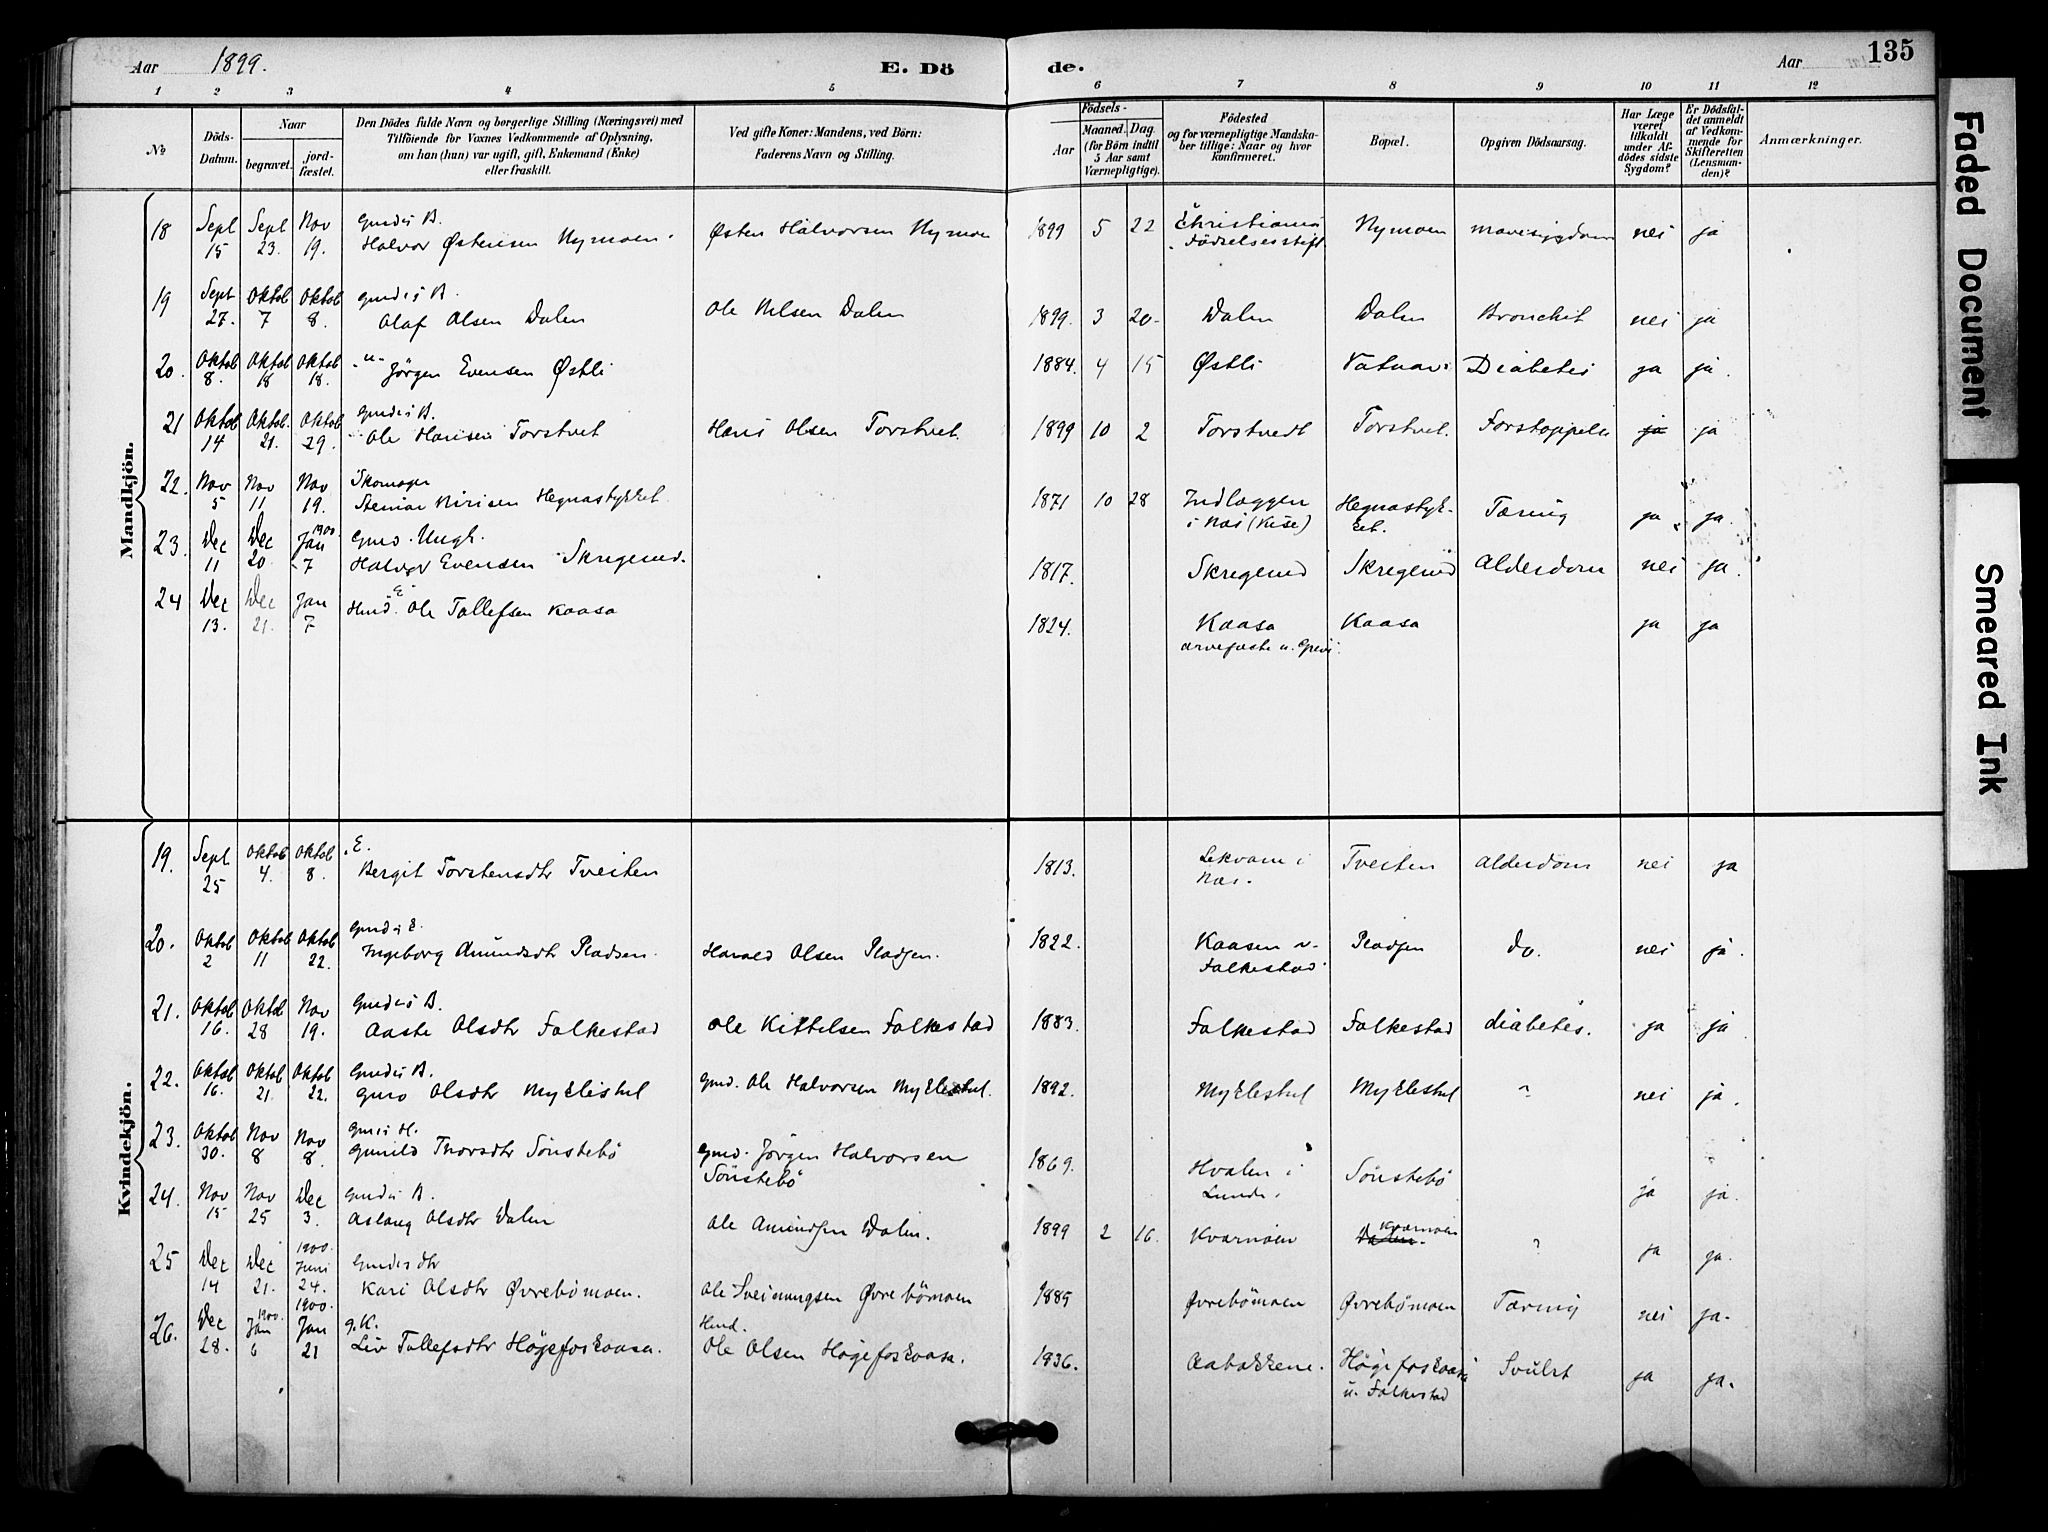 Aar 1899.
E. Dö de.
Aar
135
1 2 3 4 5 6 7 8 9 10 11 12
No
Döds-Datum.
Naar
begravet.
jord-fæstet.
Den Dödes fulde Navn og borgerlige Stilling (Næringsvei) med
Tilföiende for Voxnes Vedkommende af Oplysning,
om han (hun) var ugift, gift, Enkemand (Enke)
eller fraskilt.
Ved gifte Koner: Mandens, ved Börn:
Faderens Navn og Stilling.
Födsels-
Aar
Maaned. Dag
(for Börn indtil
5 Aar samt
Værnepligtige).
Födested
og for værnepligtige Mandska-
ber tillige: Naar og hvor
konfirmeret.
Bopæl.
Opgiven Dödsaarsag.
Har Læge
været
tilkaldt
under Af-
dödes sidste
Sygdom?
Er Dödsfal-
det anmeldt
af Vedkom-
mende for
Skifteretten
(Lensman-
den)?
Anmærkninger.
Mandkjön.
18 Sept 15 Sept 23. Nov 19. Halvor Østensen Nymoen Østen Halvorsen Nymoen 1899 5 22 Christiania Födselsstift Nymoen mavesygdom nei ja
19 Sept 27. Oktob 7 Oktob 8. Olaf Olsen Dalen Ole Nilsen Dalen 1899. 3 20 Dalen Dalen Bronchit nei ja
20. Oktob 8. Oktob 18 Oktob 18. Jörgen Evensen Østli 1884. 4 15 Østli Diabetes ja ja.
21 Oktob 14 Oktob. 21. Oktob 29. Ole Hansen Torstvet Hans Olsen Torstvet. 1899 10 2 Torstvedt Torstvet. Forstoppelse ja ja
22. Nov 5 Nov 11 Nov 19. Skomager Steinar Hegnastykket 1871 10 28 i Næs Hegnastyk-ket. Tæring ja ja.
23. Dec 11 Dec 20 1900. Jan 7 Halvor Evensen Skregerud. 1817. Skregerud Skregerud Alderdom nei ja.
24 Dec 13. Dec 21. Jan 7 Husd. E Ole Tollefsen Kaasa 1824. Kaasa Kaasa ja ja
Kvindekjön.
19. Sept 25 Oktob 4. Oktob 8. E. Bergit Torstensdtr Tveiten 1813. Lekvam i Næs. Tveiten Alderdom nei ja
20. Oktob 2 Oktob 11 Oktob 22. Ingeborg Amundsdtr Pladsen. Harald Olsen Pladsen. 1822. Kaasen u. Falkestad Pladsen Do. nei ja.
21. Oktob 16. Oktob 28 Nov 19. Aaste Olsdtr Falkestad Ole Kittelsen Falkestad 1883. Falkestad Falkestad diabetes. ja ja
22. Oktob 16. Oktob 21. Oktob 22. Guro Olsdtr Myklestul Gmd. Ole Halvorsen Myklestul. 1892. Myklestul Myklestul ? nei ja.
23. Oktob 30. Nov 8 Nov 8. Gunild Thorsdtr Sönstebö Gmd. Jörgen Halvorsen Sönstebö 1869. Hvalen i Lunde Sönstebö ja ja.
24. Nov 15 Nov 25 Dec 3. Aslaug Olsdtr Dalen Ole Amundsen Dalen. 1899 2 16. Kvarnoen Kvarnoen ? ja ja.
25 Dec 14 Dec 21. 1900. Juni 24. Kari Olsdtr Øvrebömoen. Ole Sveinungsen Øvrebömoen 1885 Øvrebömoen Øvrebömoen Tæring nei ja.
26. Dec 28. 1900. Jan 6 1900. Jan 21 g.K. Liv Tollefsdtr Högefoskaasa. Husd. Ole Olsen Högefoskaasa. 1836. Aabakkene. Högefoskaasa u. Falkestad Svulst ja ja.
Faded Document
Smeared Ink